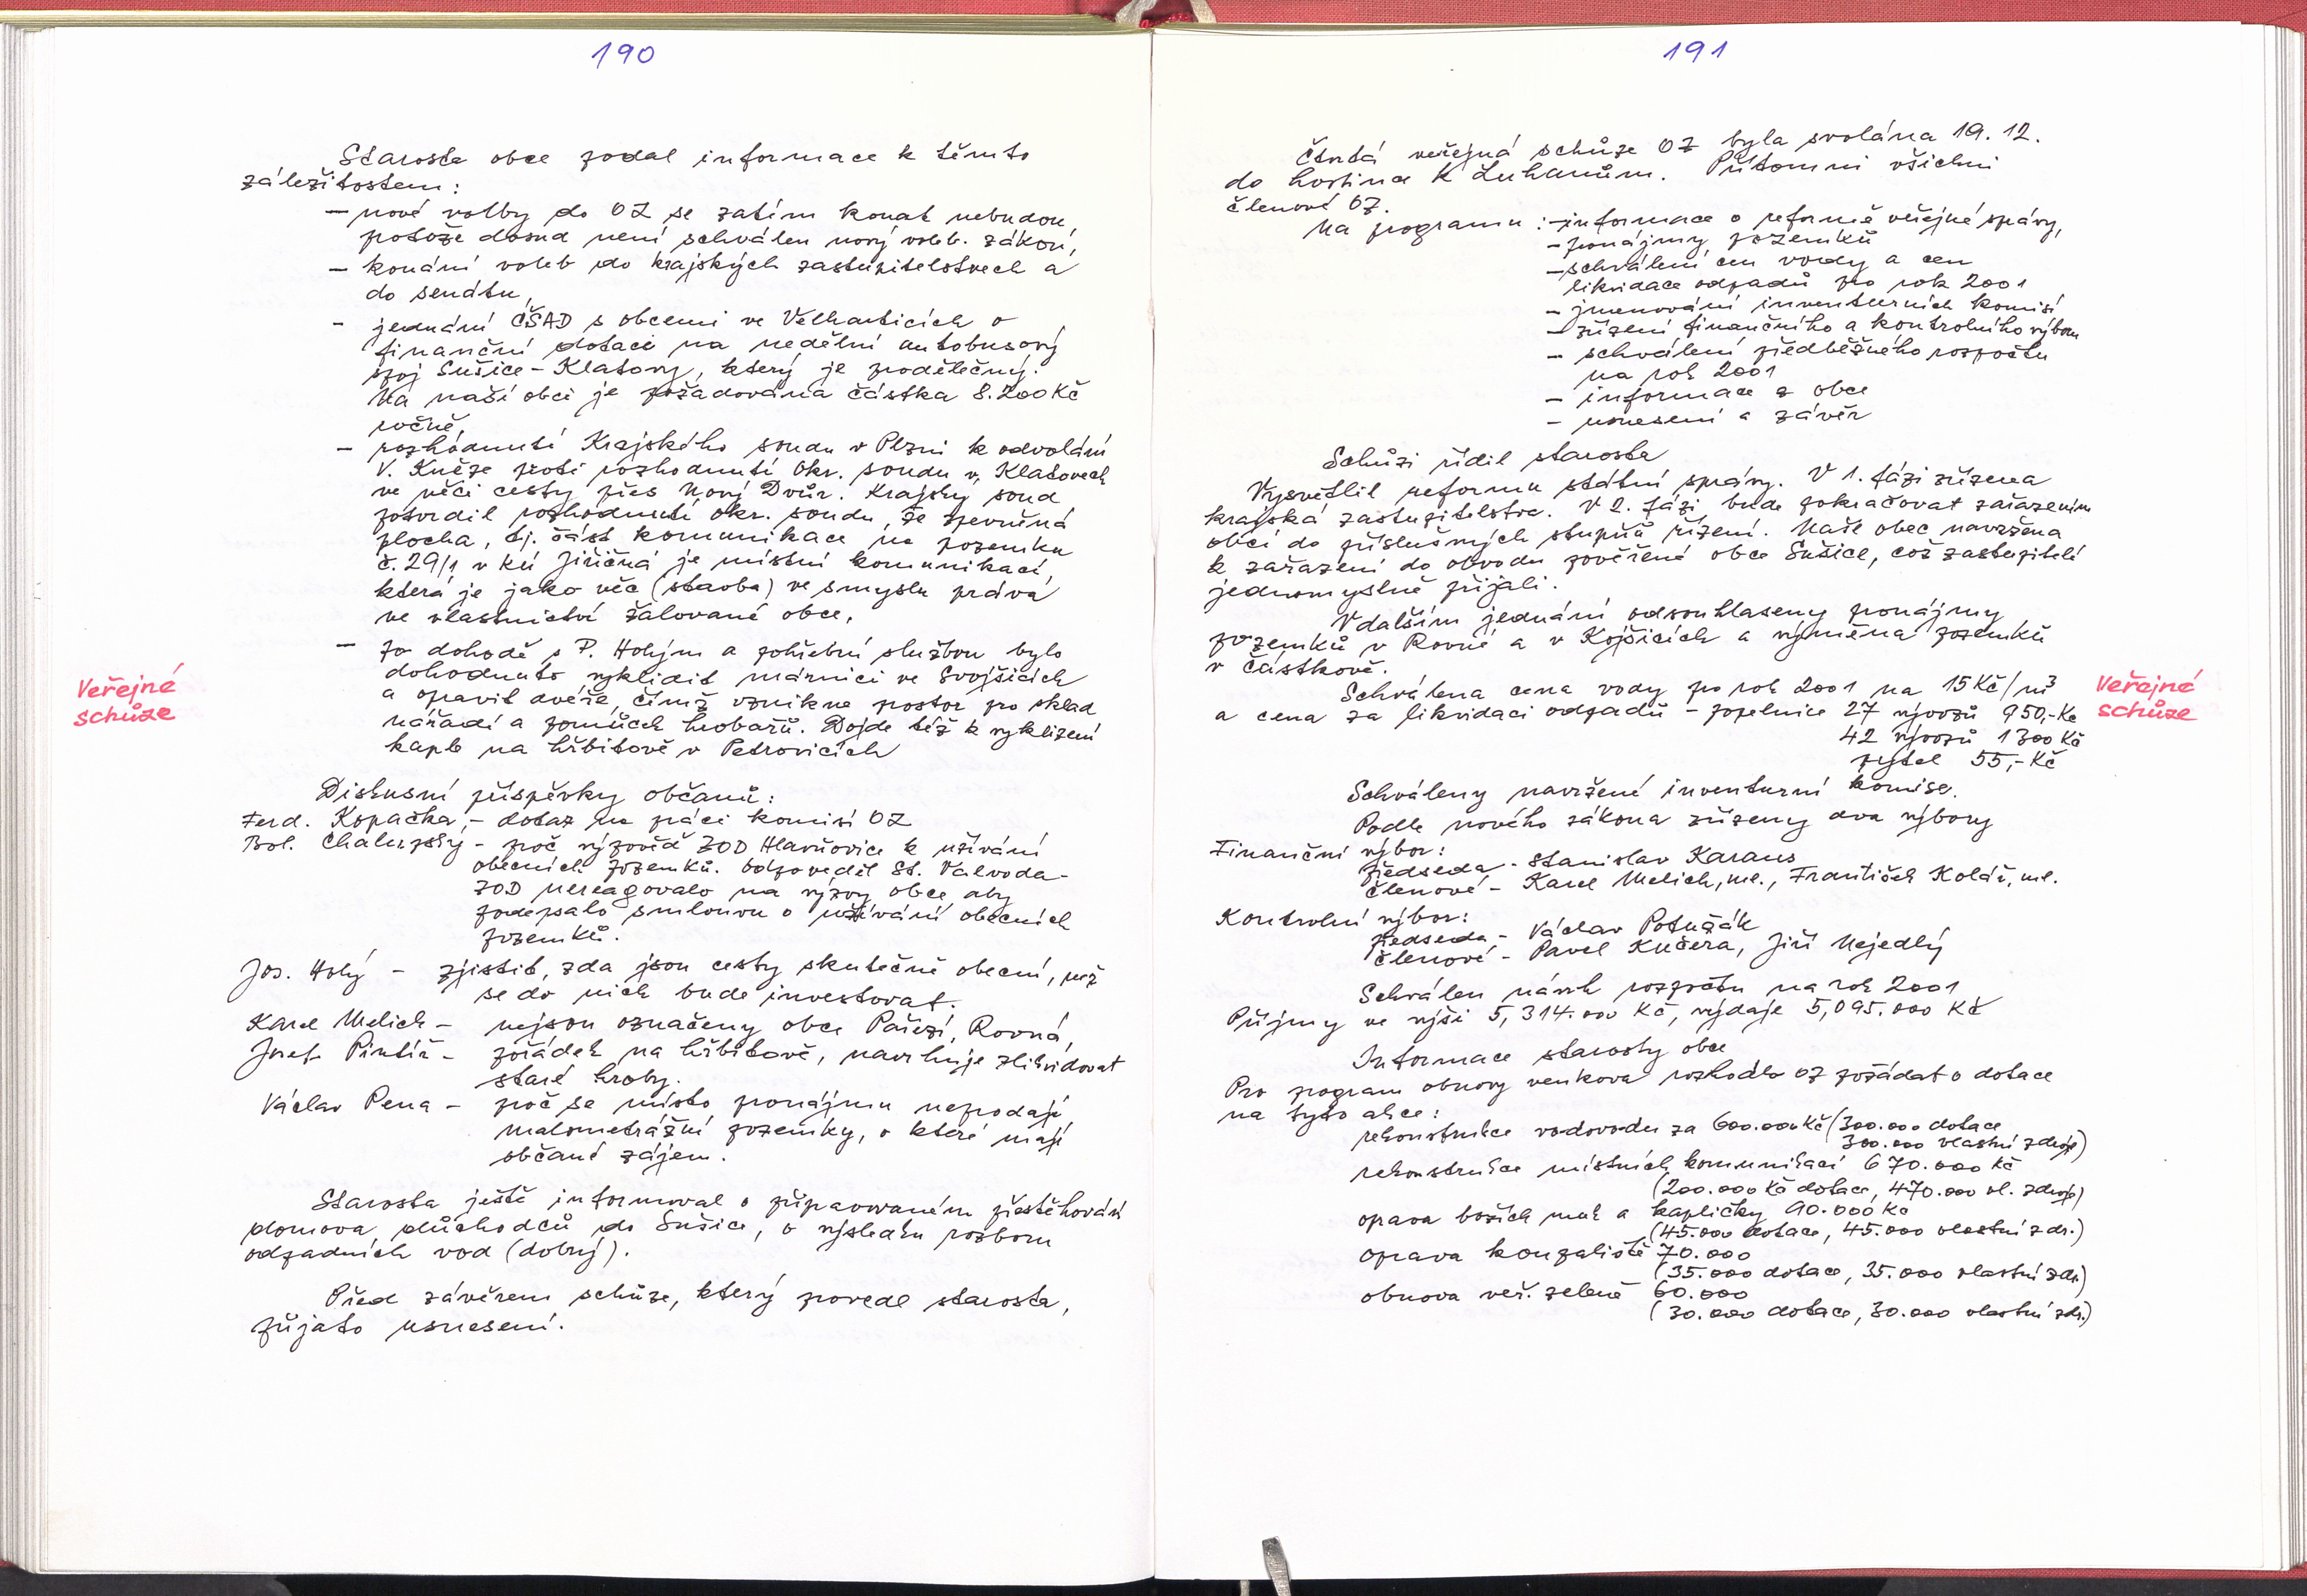 190
Starosta obce podal informace k těmto
záležitostem:
- nové volby do OZ se zatím konat nebudou,
protože dosud není schválen nový voleb. zákon,
- konání voleb do krajských zastupitelstvech a
do senátu,
- jednání ČSAD s obcemi ve Velharticích o
finanční dotaci na nedělní autobusový
spoj Sušice - Klatovy, který je prodělečný.
Na naší obci je požadována částka 8.200 Kč
ročně,
- rozhodnutí Krajského soudu v Plzni k odvolání
V. Kněze proti rozhodnutí Okr. soudu v Klatovech
ve věci cesty přes Nový Dvůr. Krajský soud
potvrdil rozhodnutí okr. soudu, že zpevněná
plocha, tj. část komunikace na pozemku
č. 29/1 v kú Jiřičná je místní komunikací,
která je jako věc (stavba) ve smyslu práva
ve vlastnictví žalované obce,
- po dohodě s P. Holým a pohřební službou bylo
dohodnuto vyklidit márnici ve Svojšicích
a opravit dveře, čímž vznikne prostor pro sklad
nářadí a pomůcek hrobařů. Dojde též k vyklizení
kaple na hřbitově v Petrovicích
Veřejné
schůze
Diskusní příspěvky občanů:
Ferd. Kopačka, - dotaz na práci komisí OZ
Bol. Chalupský - proč výpověď ZOD Hlavňovice k užívání
obecních pozemků. Odpověděl St. Valvoda -
ZOD nereagovalo na výzvy obce, aby
podepsalo smlouvu o užívání obecních
pozemků.
Jos. Holý - zjistit, zda jsou cesty skutečně obecní, než
se do nich bude investovat.
Karel Melich - nejsou označeny obce Pařezí, Rovná,
Josef Pintíř - pořádek na hřbitově, navrhuje zlikvidovat
staré hroby.
Václav Pena - proč se místo pronájmu neprodají
malometrážní pozemky, o které mají
občané zájem.
Starosta ještě informoval o připravovaném přestěhování
domova důchodců do Sušice, o výsledku rozboru
odpadních vod (dobrý).
Před závěrem schůze, který provedl starosta,
přijato usnesení.
191
Čtvrtá veřejná schůze OZ byla svolána 19. 12.
do hostince K Luhanům. Přítomni všichni
členové OZ.
Na programu: - informace o reformě veřejné správy,
- pronájmy pozemků
- schválení cen vody a cen
likvidace odpadů pro rok 2001
- jmenování inventurních komisí
- zřízení finančního a kontrolního výboru
- schválení předběžného rozpočtu
na rok 2001
- informace z obce
- usnesení a závěr
Schůzi řídil starosta
Vysvětlil reformu státní správy. V 1. fázi zřízena
krajská zastupitelstva. V 2. fázi bude pokračovat zařazením
obcí do příslušných stupňů řízení. Naše obec navržena
k zařazení do obvodu pověřené obce Sušice, což zastupitelé
jednomyslně přijali.
V dalším jednání odsouhlaseny pronájmy
pozemků v Rovné a v Kojšicích a výměna pozemků
v Částkově.
Schválena cena vody pro rok 2001 na 15 Kč/m³
a cena za likvidaci odpadů - popelnice 27 vývozů 950,- Kč
42 vývozů 1300 Kč
pytel 55,- Kč
Veřejné
schůze
Schváleny navržené inventurní komise.
Podle nového zákona zřízeny dva výbory
Finanční výbor:
předseda - Stanislav Karaus
členové - Karel Melich, ml., František Kolář, ml.
Kontrolní výbor:
předseda - Václav Potužák
členové - Pavel Kučera, Jiří Nejedlý
Schválen návrh rozpočtu na rok 2001
Příjmy ve výši 5,314.000 Kč, výdaje 5,095.000 Kč
Informace starosty obce
Pro program obnovy venkova rozhodlo OZ požádat o dotace
na tyto akce:
rekonstrukce vodovodu za 600.000 Kč (300.000 dotace
300.000 vlastní zdroje)
rekonstrukce místních komunikací 670.000 Kč
(200.000 Kč dotace, 470.000 vl. zdroje)
oprava božích muk a kapličky 90.000 Kč
(45.000 dotace, 45.000 vlastní zdr.)
oprava koupaliště 70.000
(35.000 dotace, 35.000 vlastní zdr.)
obnova veř. zeleně 60.000
(30.000 dotace, 30.000 vlastní zdr.)